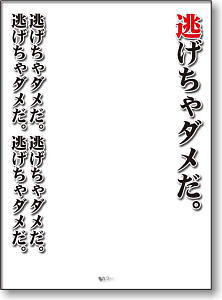 逃げちゃダメだ。
逃げちゃダメだ。逃げちゃダメだ。
逃げちゃダメだ。逃げちゃダメだ。